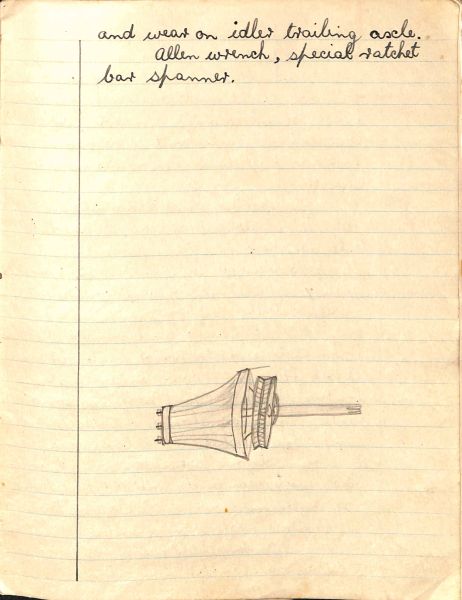 and wear on idler trailing axle.
Allen wrench, special ratchet
bar spanner.